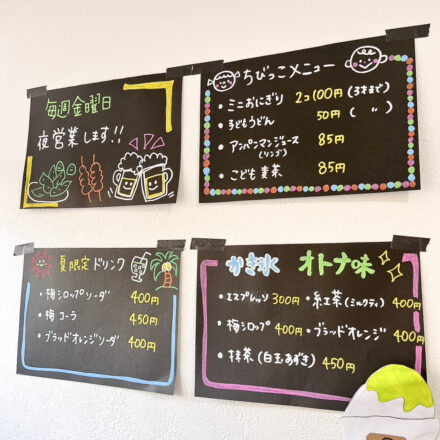 毎週金曜日
夜営業します!!
ちびっこメニュー
・ミニおにぎり 2コ100円(3才まで)
・子どもうどん 50円( 〃 )
・アンパンマンジュース 85円
(リンゴ)
・こども麦茶 85円
夏限定ドリンク
・梅シロップソーダ 400円
・梅コーラ 450円
・ブラッドオレンジソーダ 400円
かき氷 オトナ味
・エスプレッソ 300円 ・紅茶(ミルクティ) 400円
・梅シロップ 400円 ・ブラッドオレンジ 400円
・抹茶(白玉あずき) 450円